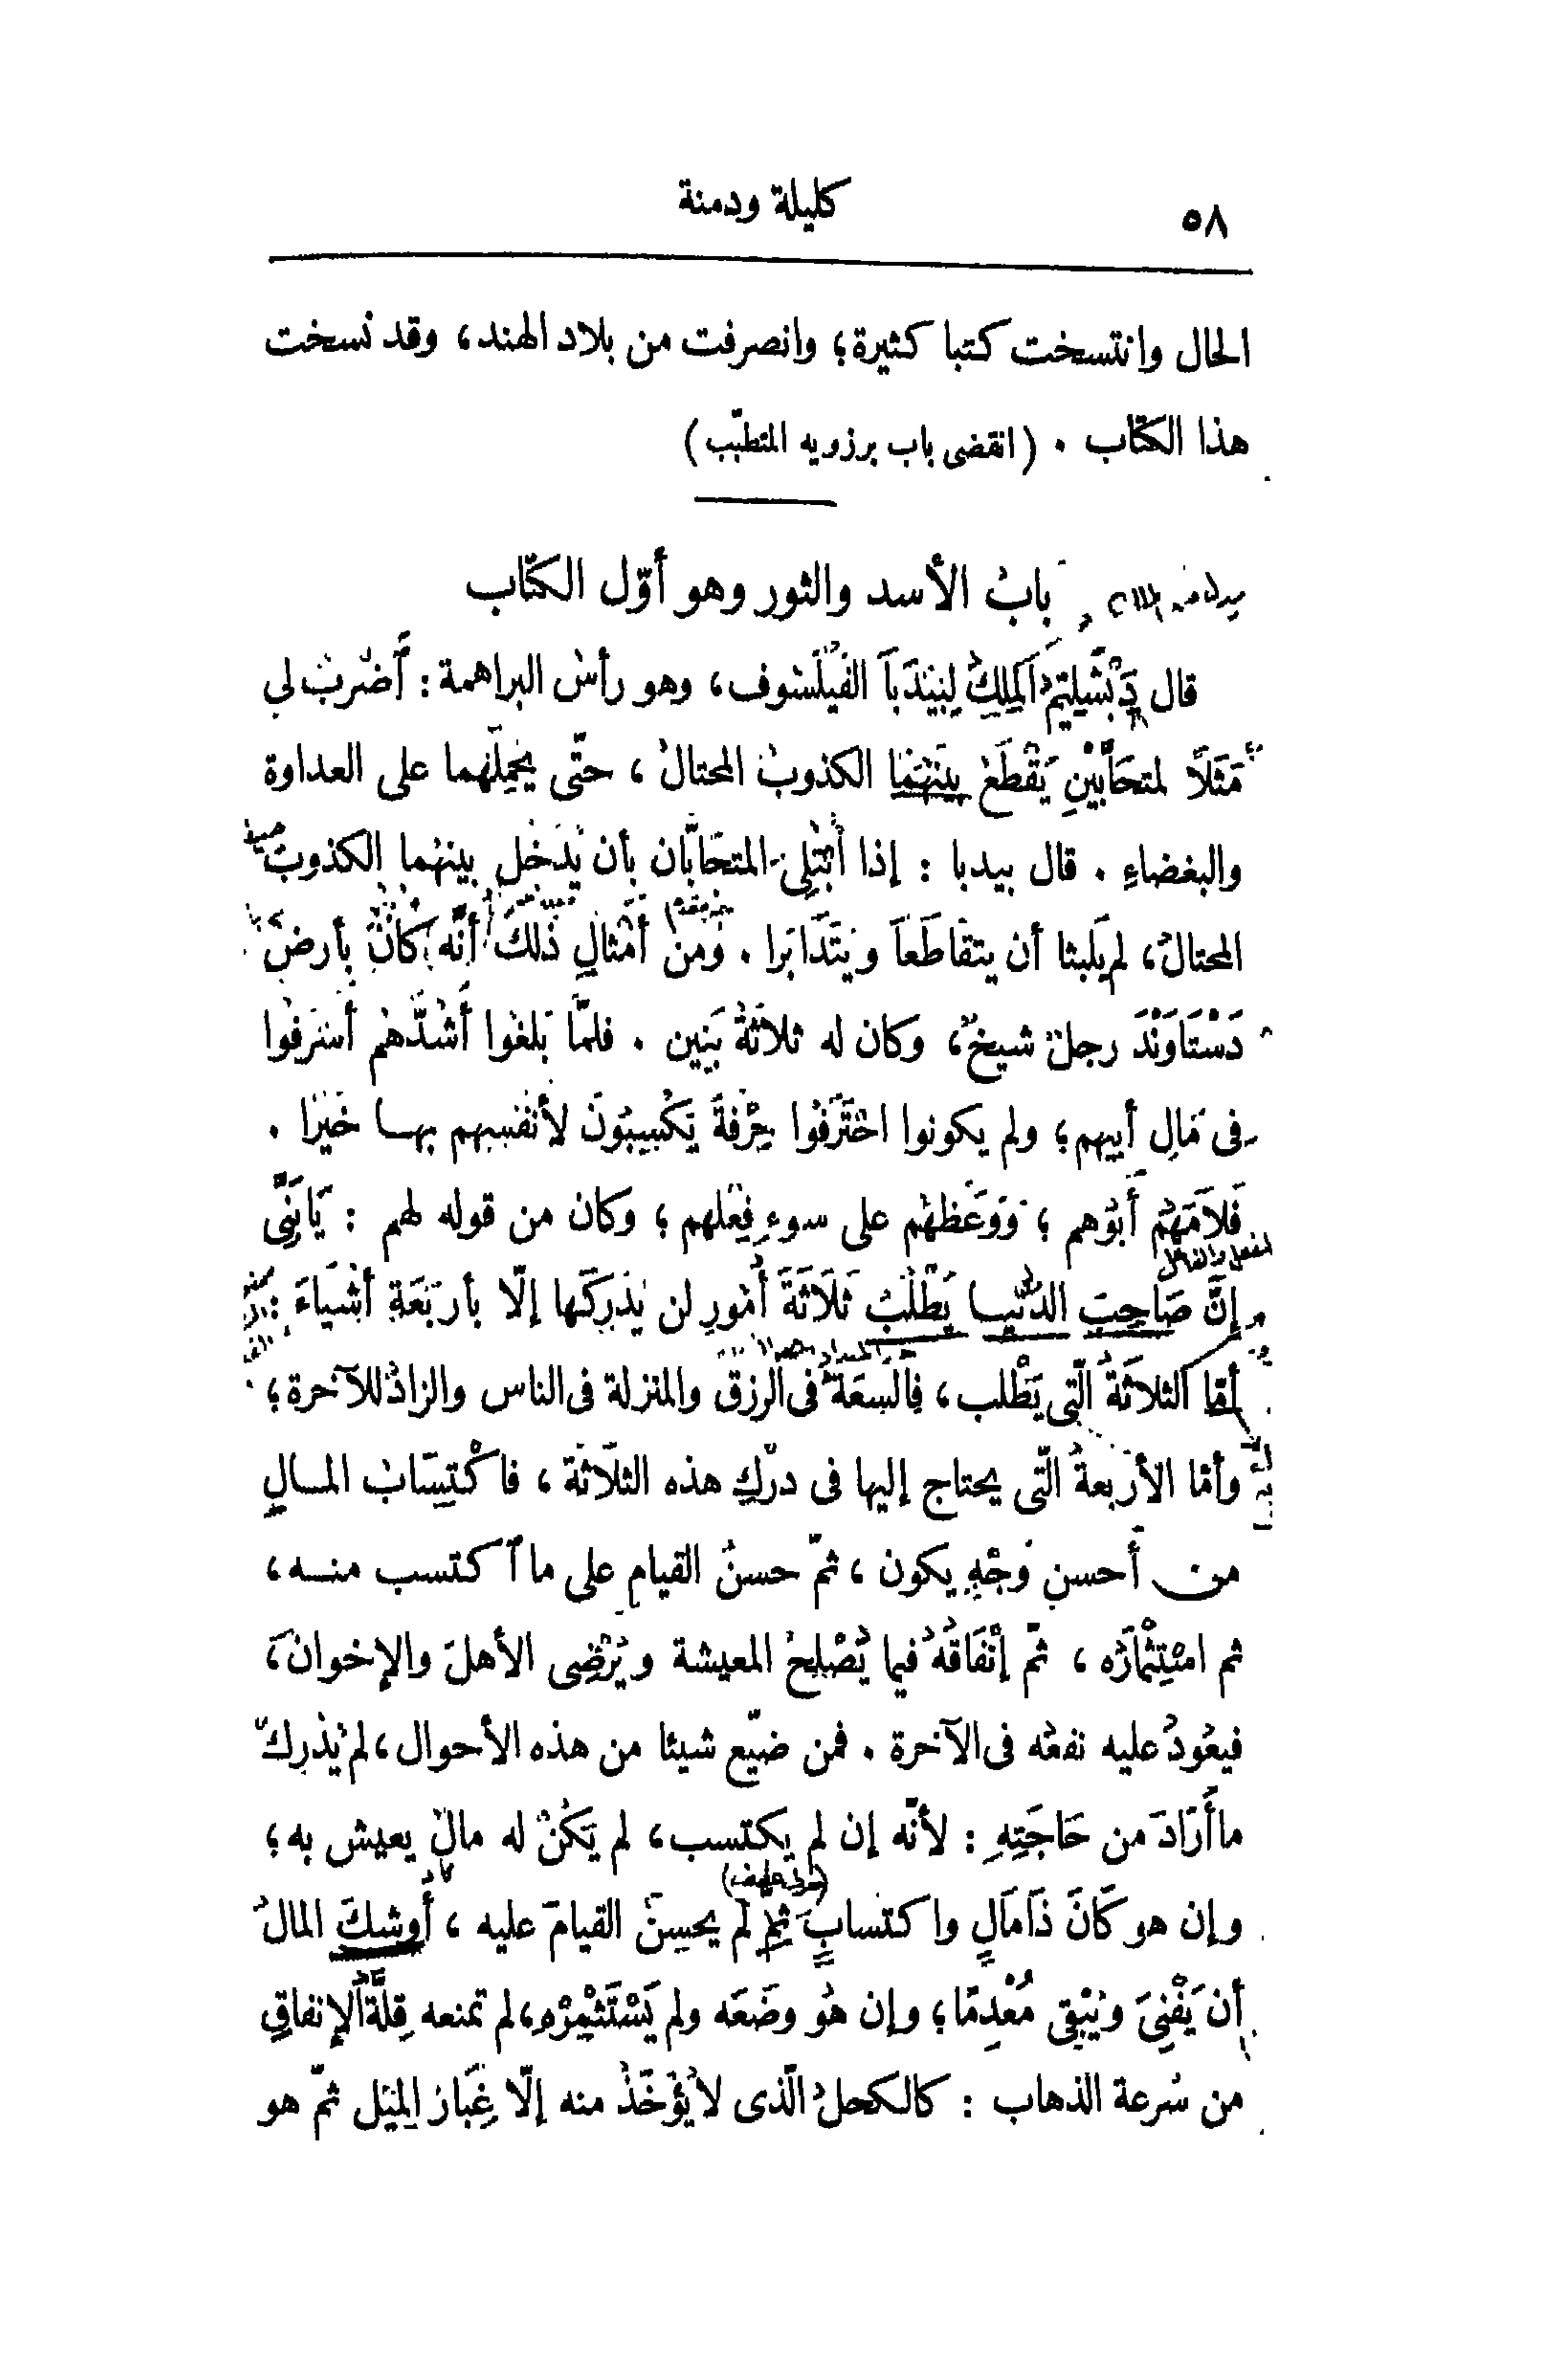 ٥٨
كليلة ودمنة
الحال وانتسخت كتبا كثيرة؛ وانصرفت من بلاد الهند، وقد نسخت
هذا الكتاب . (انقضى باب برزويه المتطبّب)
بابُ الأسد والثور وهو أوّل الكتاب
قال دَبْشَلِيمُ المَلِكُ لِبَيْدَبَا الفَيْلَسُوف، وهو رأسُ البراهمة: أضْرِبْ لى
مَثَلًا لمتحَابَّيْنِ يَقْطَعُ بينَهُمَا الكذوبُ المحتالُ، حتّى يحْمِلَهما على العداوة
والبغضاءِ . قال بيدبا : إذا أبْتُلِىَ المتحَابَّان بأن يَدْخُل بينهما الكذوبُ
المحتالُ، لم يَلبثا أن يتقاطَعَا ويَتَدَابَرا . ومنْ أمْثالِ ذَلكَ أنّه كَانَ بأرضِ
دَسْتَاوَنْدَ رجلٌ شيخٌ، وكان له ثلاثَةُ بَنِين . فلمّا بَلغُوا أشُدَّهُمْ أسْرَفُوا
فى مَالِ أبيهم؛ ولم يكونوا احْتَرَفُوا حِرْفَةً يَكْسِبُونَ لأنْفسِهم بهـا خَيْرًا .
فَلامَهُمْ أَبُوهم ؛ وَوَعَظهُم على سوءِ فِعْلهم ؛ وكان من قوله لهم : يَا بَنِىَّ
إِنَّ صَاحِبَ الدُّنْيـا يَطْلُبُ ثَلَاثَةَ أُمُورٍ لن يُدْرِكَها إلّا بأربَعَةِ أشْيَاءَ :
أمّا الثلاثَةُ الّتى يَطْلب، فَالسِعَةُ فى الرزق والمنزلة فى الناس والزادُ للآخرة؛
وأمّا الأرْبعةُ الّتى يحتاج إليها فى درْكِ هذه الثلَاثَة، فاكْتِسَابُ المـالِ
من أَحسنِ وَجْهٍ يكون ، ثمّ حسنُ القيامِ على ما اكتسب منـه،
ثم استِثْمارُه ، ثمّ إنْفَاقُهُ فيما يُصْلِحُ المعيشة ويُرْضِى الأهلَ والإخوانَ،
فيعُودُ عليه نفعُه فى الآخرة . فمن ضيّع شيئا من هذه الأحوال، لم يُدْرِكْ
ما أَرَادَ من حَاجَتِهِ : لأنّه إن لم يكتسب، لم يَكُنْ له مالٌ يعيش به؛
وإن هو كَانَ ذَا مَالٍ واكتسابٍ ثُمّ لَمْ يحسِنْ القيامَ عليه ، أَوشكَ المالُ
أن يَفْنَى ويَبْقَى مُعْدِمًا؛ وإن هُو وضَعَه ولم يَسْتَثْمِرْهِ، لم تمنعه قِلَّةُ الإنفاقِ
من سُرعة الذهاب : كالكحلِ الّذى لَا يُؤْخَذُ منه إلّا غُبَارُ المِيْل ثمّ هو